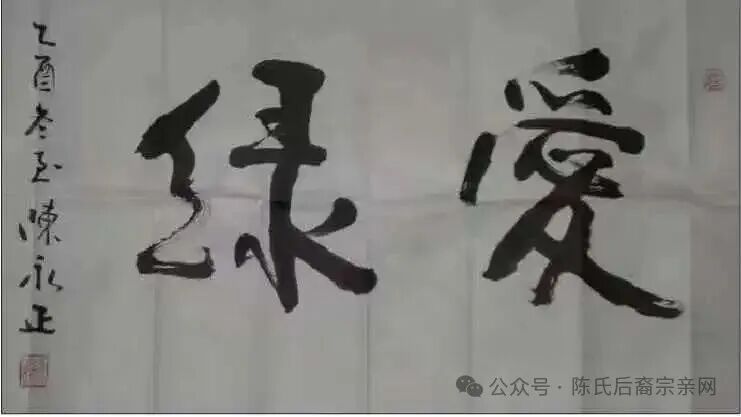 愛绿
乙酉冬至陳永正
公众号·陈氏后裔宗亲网